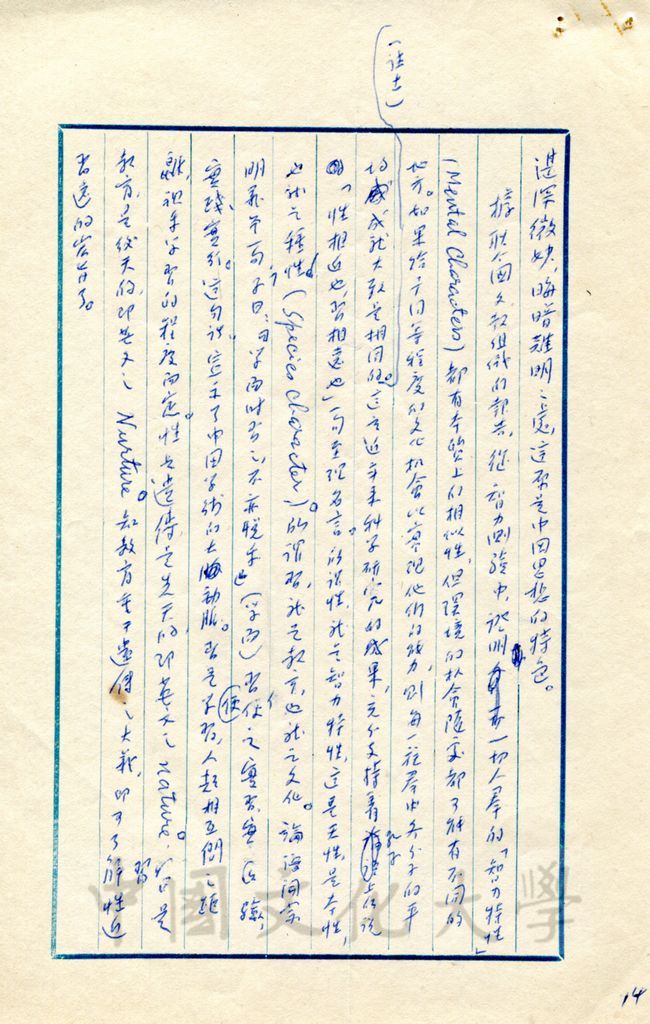 湛深微妙，晦暗難明之處，這要是中國思想的特色。
據聯合國文教組織的報告，從智力測驗中，證明一切人羣的「智力特性」
(Mental Characters) 都有本質上的相似性，但環境的機會隨處都可能有不同的
地方。如果給予同等程度的文化機會以實現他們的能力，則每一種羣中各分子的平
均成就大致是相同的。這是近年來科學研究的成果，充分支持着孔子所說
「性相近也，習相遠也」一句至理名言。所謂性，就是智力特性，這是天性，是本性，
也就是種性 (Species Character)。所謂習，就是教育，也就是文化。論語開宗
明義第一章，子曰：「學而時習之，不亦悅乎」(學而) 習使之實習，實驗，
實踐，實行。這句話宣示了中國學術的大動脈。習是學習，人起相互間之距
離，視乎學習的程度而定。性是遺傳，是先天的，即英文之 nature，習是
教育，是後天的，即英文之 Nurture。知教育重于遺傳之大義，即可了解性近
習遠的含意了。
(註七)
14
中國文化大學